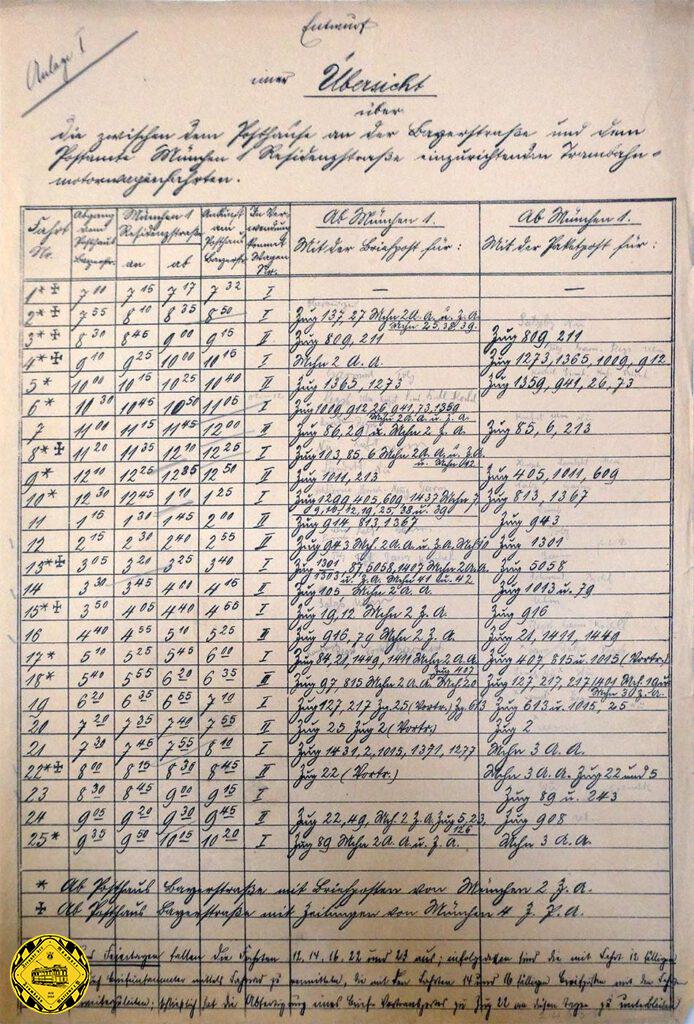 Anlage I
Entwurf
einer Übersicht
über
die zwischen dem Posthause an der Bayerstraße und dem
Postamte München 1 Residenzstraße einzurichtenden Trambahn-
motorwagenfahrten.
Fahrt Nr. | Abgang vom Posthaus Bayerstr. | München 1 Residenzstraße an | ab | Ankunft am Posthaus Bayerstr. | In Verwendung kommt Wagen Nr. | Ab München 1. Mit der Briefpost für: | Ab München 1. Mit der Paketpost für:
1*✠ 7 00 7 15 7 17 7 32 I — —
2*✠ 7 55 8 10 8 35 8 50 I Zug 137, 27 Mchn 2 A. A. u. Z. A. Mchn 25, 38, 39.
3*✠ 8 30 8 45 9 00 9 15 II Zug 809, 211 Zug 809, 211
4*✠ 9 10 9 25 10 00 10 15 I Mchn 2 A. A. Zug 1273, 1365, 1009, 912
5* 10 00 10 15 10 25 10 40 II Zug 1365, 1273 Zug 1359, 941, 26, 73
6* 10 30 10 45 10 50 11 05 I Zug 1009, 912, 26, 941, 73, 1359 Mchn 2 A. A. u. Z. A.
7 11 00 11 15 11 45 12 00 II Zug 86, 29 u. Mchn 2 Z. A. Zug 85, 6, 213
8*✠ 11 20 11 35 12 10 12 25 I Zug 103, 85, 6 Mchn 2 A. A. u. Z. A. u. Mchn 42
9* 12 10 12 25 12 35 12 50 II Zug 1011, 213 Zug 405, 1011, 609
10* 12 30 12 45 1 10 1 25 I Zug 1299, 405, 609, 1437 Mchn 7, 9, 10, 12, 19, 25, 38 u. 39 Zug 813, 1367
11 1 15 1 30 1 45 2 00 II Zug 914, 813, 1367 Zug 943
12 2 15 2 30 2 40 2 55 II Zug 943 Mch. 2 A. A. u. Z. A. Mch 10 Zug 1301
13*✠ 3 05 3 20 3 25 3 40 I Zug 1301/1303, 87, 5058, 1407 Mchn 2 A. A. u. Z. A. Mchn 41 u. 42 Zug 5058
14 3 30 3 45 4 00 4 15 II Zug 105 Mchn 2 A. A. Zug 1013 u. 79
15*✠ 3 50 4 05 4 40 4 55 I Zug 19, 12 Mchn 2 Z. A. Zug 916
16 4 40 4 55 5 10 5 25 II Zug 916, 79 Mchn 2 Z. A. Zug 21, 1411, 1449
17* 5 10 5 25 5 45 6 00 I Zug 84, 21, 1449, 1411 Mchn 2 A. A. Zug 407, 815 u. 1015 (Vortr.)
18* 5 40 5 55 6 20 6 35 II Zug 97, 815 Mchn 2 A. A. Mch 20 Zug 407 Zug 127, 217, 217/401 Mch. 19 u. Mchn 3 Z. A.
19 6 20 6 35 6 55 7 10 I Zug 127, 217 Zg. 25 (Vortr.) Zg 613 Zug 613 u. 1015, 25
20 7 20 7 35 7 40 7 55 II Zug 25 Zug 2 (Vortr.) Zug 2
21 7 30 7 45 7 55 8 10 I Zug 1431, 2, 1015, 1371, 1277 Mchn 3 A. A.
22*✠ 8 00 8 15 8 30 8 45 II Zug 22 (Vortr.) Mchn 3 A. A. Zug 22 und 5
23 8 30 8 45 9 00 9 15 I Zug 89 u. 243
24 9 05 9 20 9 30 9 45 II Zug 22, 49, Mch. 2 Z. A. Zug 5, 23, 126 Zug 908
25* 9 35 9 50 10 05 10 20 I Zug 89 Mchn 2 A. A. u. Z. A. Mchn 3 A. A.
* Ab Posthaus Bayerstraße mit Briefposten von München 2 Z. A.
✠ Ab Posthaus Bayerstraße mit Zeitungen von München 4 Z. P. A.
Feiertagen fallen die Fahrten 12. 14. 16. 22 und 23 aus; infolgedessen sind die mit Fahrt 12 fälligen
mittels Fahrrad zu die mit den Fahrten 14 und 16 fälligen
hat die Abfertigung eines Brief zu Zug 22 an diesen Tagen zu unterbleiben